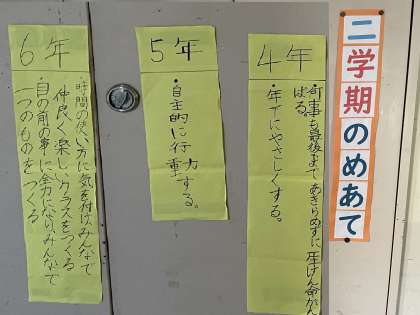 二学期のめあて
4年
・何事も最後まであきらめずに一生けん命がん
ばる。
・年下にやさしくする。
5年
・自主的に行動する。
6年
・時間の使い方に気を付け、みんなで
仲良く楽しいクラスをつくる
・目の前の事に全力になり、みんなで
一つのものをつくる